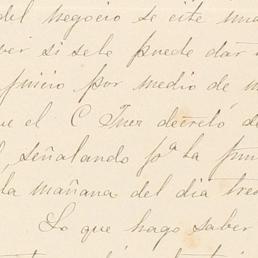 del negocio se cite una
ber si se le puede dar
juicio por medio de u
ue el C Juez decretó de
l, señalando pª la
la mañana del dia trec
Lo que hago saber